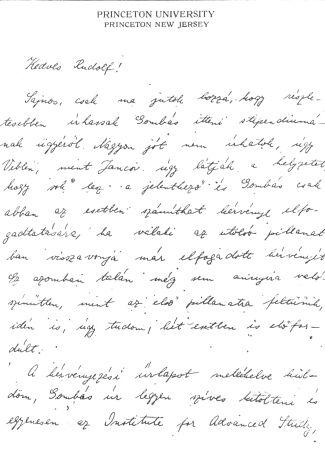 PRINCETON UNIVERSITY
PRINCETON NEW JERSEY
Kedves Rudolf!
Sajnos, csak ma jutok hozzá, hogy részle-
tesebben írhassak Gombás itteni stipendiumá-
nak ügyéről. Nagyon jót nem írhatok, úgy
Veblen, mint Jancsi úgy látják a helyzetet,
hogy sok lesz a jelentkező és Gombás csak
abban az esetben számíthat kérvénye elfo-
gadtatására, ha valaki az utolsó pillanat
ban visszavonja már elfogadott kérvényét.
Ez azonban talán még sem annyira való
színűtlen, mint az első pillanatra feltűnik,
idén is, úgy tudom, két esetben is elő for-
dúlt.
A kérvényezési űrlapot mellékelve kül-
döm, Gombás úr legyen szíves kitölteni és
egyenesen az Institute for Advanced Study,